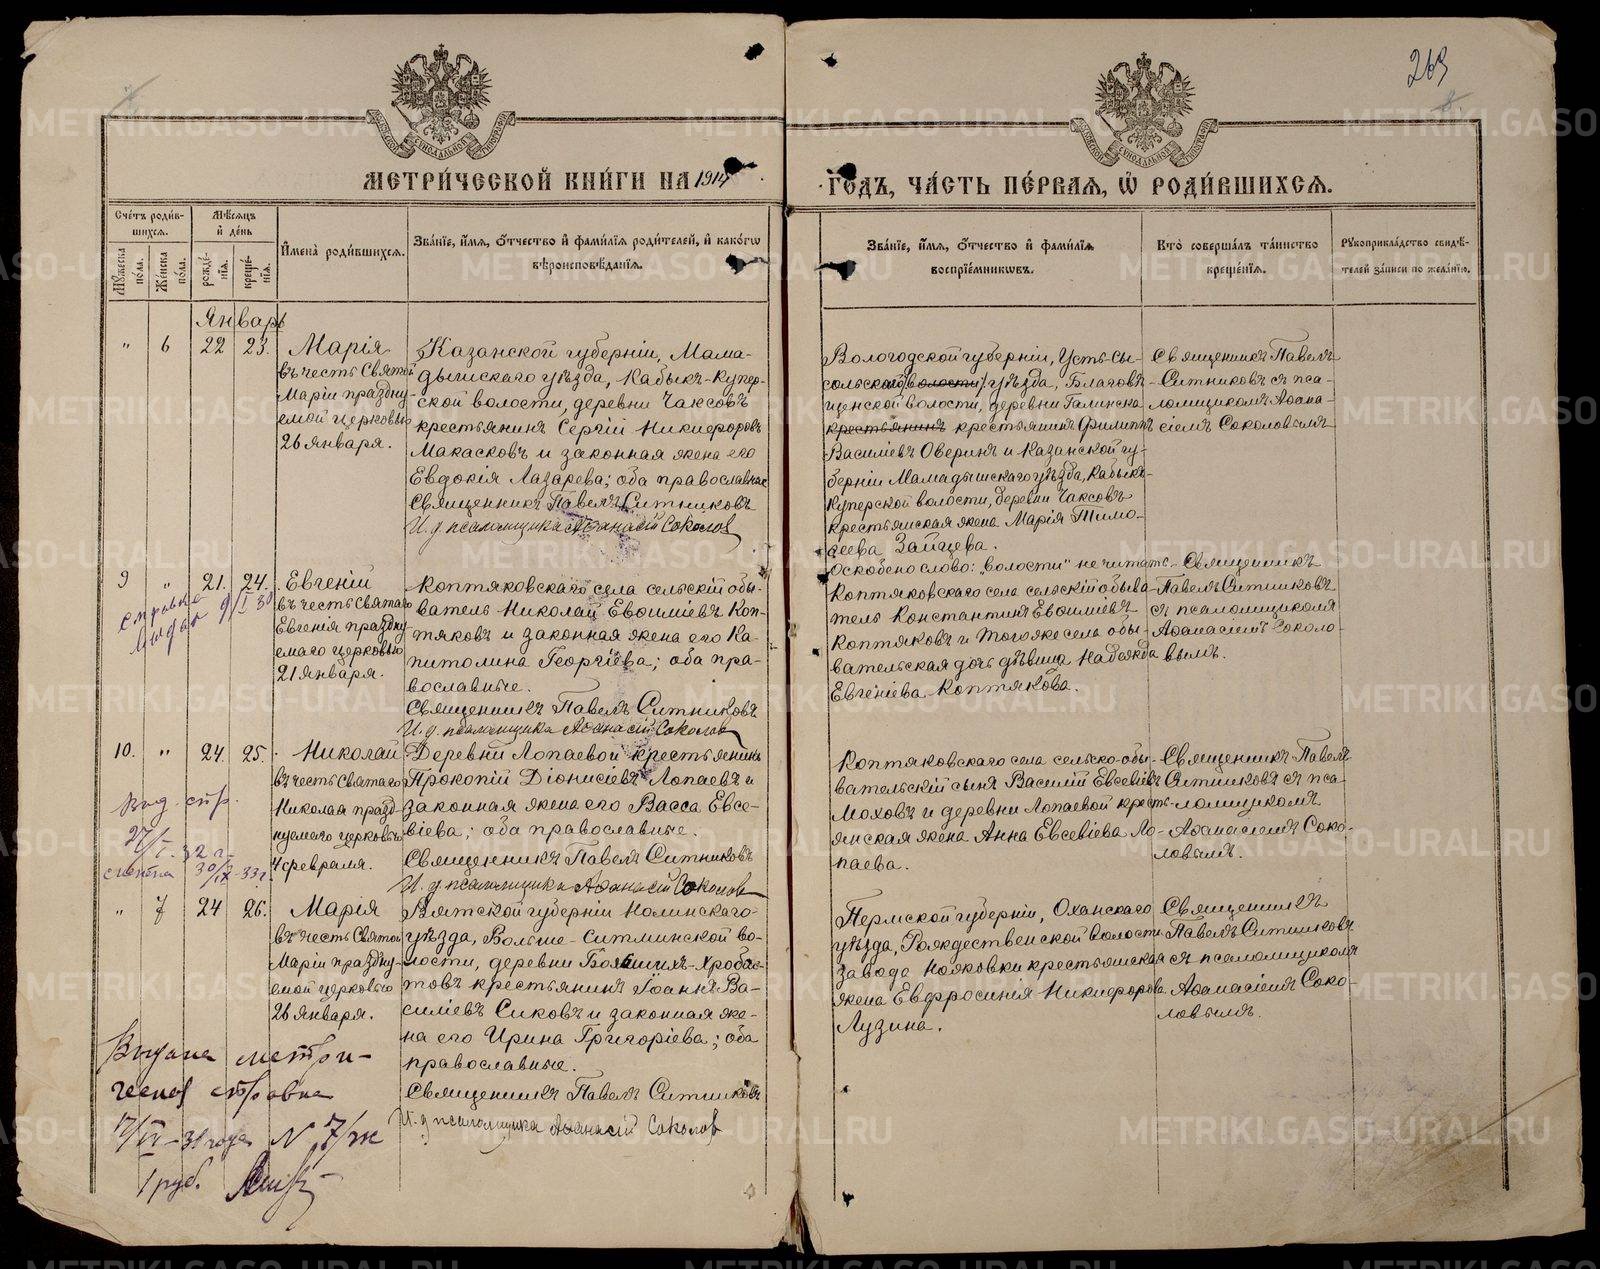 269
МЕТРИ́ЧЕСКОЙ КНИ́ГИ НА 1914
ГОДЪ, ЧА́СТЬ ПЕ́РВАЯ, Ѿ РОДИ́ВШИХСЯ.
Сче́тъ роди́в-
шихся.
Мѣ́сяцъ
и҆ де́нь
И҆мена̀ роди́вшихся.
Зва́нїе, и҆́мя, ѻ҆́тчество и҆ фами́лїя роди́телей, и҆ како́гѡ
вѣроисповѣ́данїя.
Зва́нїе, и҆́мя, ѻ҆́тчество и҆ фами́лїя
воспрїе́мникѡвъ.
Кто̀ соверша́лъ та́инство
креще́нїя.
Рукоприкла́дство свидѣ́-
телей за́писи по жела́нїю.
Му́жеска
по́ла.
Же́нска
по́ла.
рожде́-
нїя.
креще́-
нїя.
Январь
" 6 22 23.
Марія
въ честь Святой
Маріи праздну-
емой церковью
26 января.
Казанской губерніи, Мама-
дышскаго уѣзда, Кабыкъ-Купер-
ской волости, деревни Чаксовъ
крестьянинъ Сергій Никифоровъ
Макасковъ и законная жена его
Евдокія Лазарева; оба православные
Священникъ Павелъ Ситниковъ
И. д. псаломщика Аѳанасій Соколов
Вологодской губерніи, Усть-Сы-
сольскаго (волости) уѣзда, Благовѣ-
щенской волости, деревни Галинска
крестьянинъ крестьянинъ Филиппъ
Василіевъ Оверинъ и Казанской гу-
берніи Мамадышскаго уѣзда, Кабыкъ-
Куперской волости, деревни Чаксовъ
крестьянская жена Марія Тимо-
ѳеева Зайцева.
Оскоблено слово: "волости" не читать
Священникъ Павелъ
Ситниковъ съ пса-
ломщикомъ Аѳана-
сіемъ Соколовымъ
9 " 21. 24.
справка
выдан 9/I 30
Евгеній
въ честь Святаго
Евгенія праздну-
емаго церковью
21 января.
Коптяковскаго села сельскій обы-
ватель Николай Евѳиміевъ Коп-
тяковъ и законная жена его Ка-
питолина Георгіева; оба пра-
вославные.
Священникъ Павелъ Ситниковъ
И. д. псаломщика Аѳанасій Соколов
Коптяковскаго села сельскій обыва-
тель Константинъ Евѳиміевъ
Коптяковъ и того же села обы-
вательская дочь дѣвица Надежда
Евгеніева Коптякова.
Священникъ
Павелъ Ситниковъ
съ псаломщикомъ
Аѳанасіемъ Соколо-
вымъ.
10. " 24. 25.
Выд. стр.
27/I-32 г.
30/IX-33 г.
Николай
въ честь Святаго
Николая празд-
нуемаго церковью
4 февраля.
Деревни Лопаевой крестьянинъ
Прокопій Діонисіевъ Лопаевъ и
законная жена его Васса Евсе-
віева; оба православные.
Священникъ Павелъ Ситниковъ
И. д. псаломщика Аѳанасій Соколов
Коптяковскаго села сельско-обы-
вательскій сынъ Василій Евсевіевъ
Моховъ и деревни Лопаевой кресть-
янская жена Анна Евсевіева Ло-
паева.
Священникъ Павелъ
Ситниковъ съ пса-
ломщикомъ
Аѳанасіемъ Соко-
ловымъ.
" 7 24 26.
Марія
въ честь Святой
Маріи праздну-
емой церковью
26 января.
Вятской губерніи Нолинскаго
уѣзда, Больше-Ситминской во-
лости, деревни
крестьянинъ Іоаннъ Ва-
силіевъ Сиковъ и законная же-
на его Ирина Григоріева; оба
православные.
Священникъ Павелъ Ситниковъ
И. д псаломщика Аѳанасій Соколов
Пермской губерніи, Оханскаго
уѣзда, Рождественской волости
завода Ножовки крестьянская
жена Евфросинія Никифорова
Лузина.
Священникъ
Павелъ Ситниковъ
съ псаломщикомъ
Аѳанасіемъ Соко-
ловымъ.
Выдана метри-
ческая справка
17/IV-31 года N 7/ж
1 руб.
METRIKI.GASO-URAL.RU